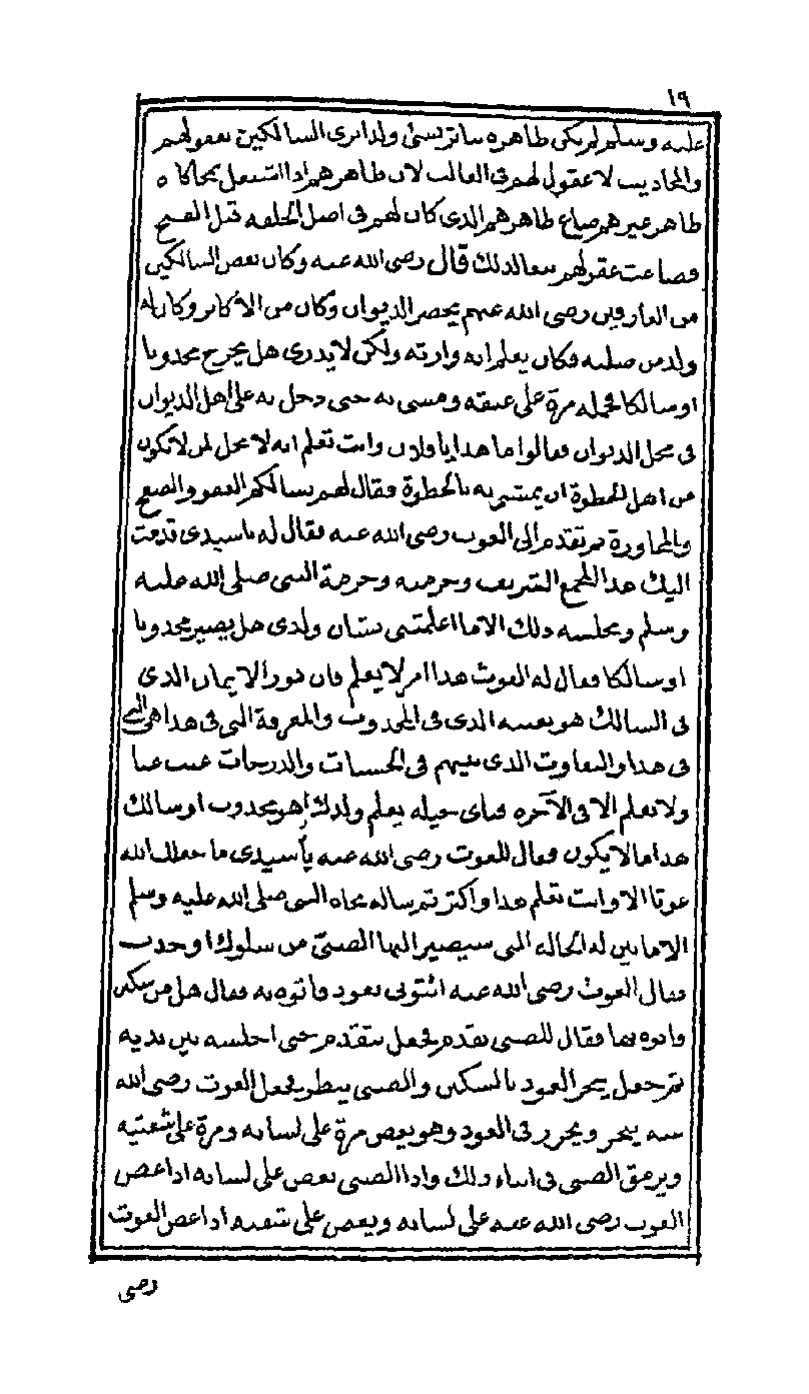 ١٩
عليه وسلم لم يكن ظاهره يتاثر بشئ ولذا ترى السالكين بعقولهم
والمجاذيب لا عقول لهم فى الغالب لان ظاهرهم اذا اشتغل بمحاكاة
ظاهر غيرهم ضاع ظاهرهم الذى كان لهم فى اصل الخلقه قبل الفتح
فضاعت عقولهم تبعا لذلك قال رضى الله عنه وكان بعض السالكين
من العارفين رضى الله عنهم يحضر الديوان وكان من الاكابر وكان له
ولد من صلبه فكان يعلم انه وارثه ولكن لا يدرى هل يخرج مجذوبا
او سالكا فحمله مرة على عنقه ومشى به حتى دخل به على اهل الديوان
فى محل الديوان فقالوا ما هذا يا فلان وانت تعلم انه لا يحل لمن لا يكون
من اهل الخطوة ان يمشى به بالخطوة فقال لهم نسالكم العفو والصفح
والمجاورة ثم تقدم الى الغوث رضى الله عنه فقال له يا سيدى قدمت
اليك هذا المجمع الشريف وحرمته وحرمة النبى صلى الله عليه
وسلم ومجلسه ذلك الا ما اعلمتنى بشان ولدى هل يصير مجذوبا
او سالكا فقال له الغوث هذا امر لا يعلم فان نور الايمان الذى
فى السالك هو بعينه الذى فى المجذوب والمعرفة التى فى هذا هى التى
فى هذا والتفاوت الذى بينهم فى الحسنات والدرجات غيب عنا
ولا تعلم الا فى الآخره فباى حيله يعلم ولدك أهو مجذوب او سالك
هذا ما لا يكون فقال للغوث رضى الله عنه يا سيدى ما جعلك الله
غوثا الا وانت تعلم هذا واكثر ثم ساله بجاه النبى صلى الله عليه وسلم
الا ما بين له الحاله التى سيصير اليها الصبى من سلوك او جذب
فقال الغوث رضى الله عنه ائتونى بعود فاتوه به فقال هل من سكين
فاتوه بها فقال للصبى تقدم فجعل يتقدم حتى اجلسه بين يديه
ثم جعل ينجر العود بالسكين والصبى ينظر فجعل الغوث رضى الله
عنه ينجر ويحرر فى العود وهو يعض مرة على لسانه ومرة على شفتيه
ويرمق الصبى فى اثناء ذلك واذا الصبى يعض على لسانه اذا عض
الغوث رضى الله عنه على لسانه ويعض على شفته اذا عض الغوث
رضى